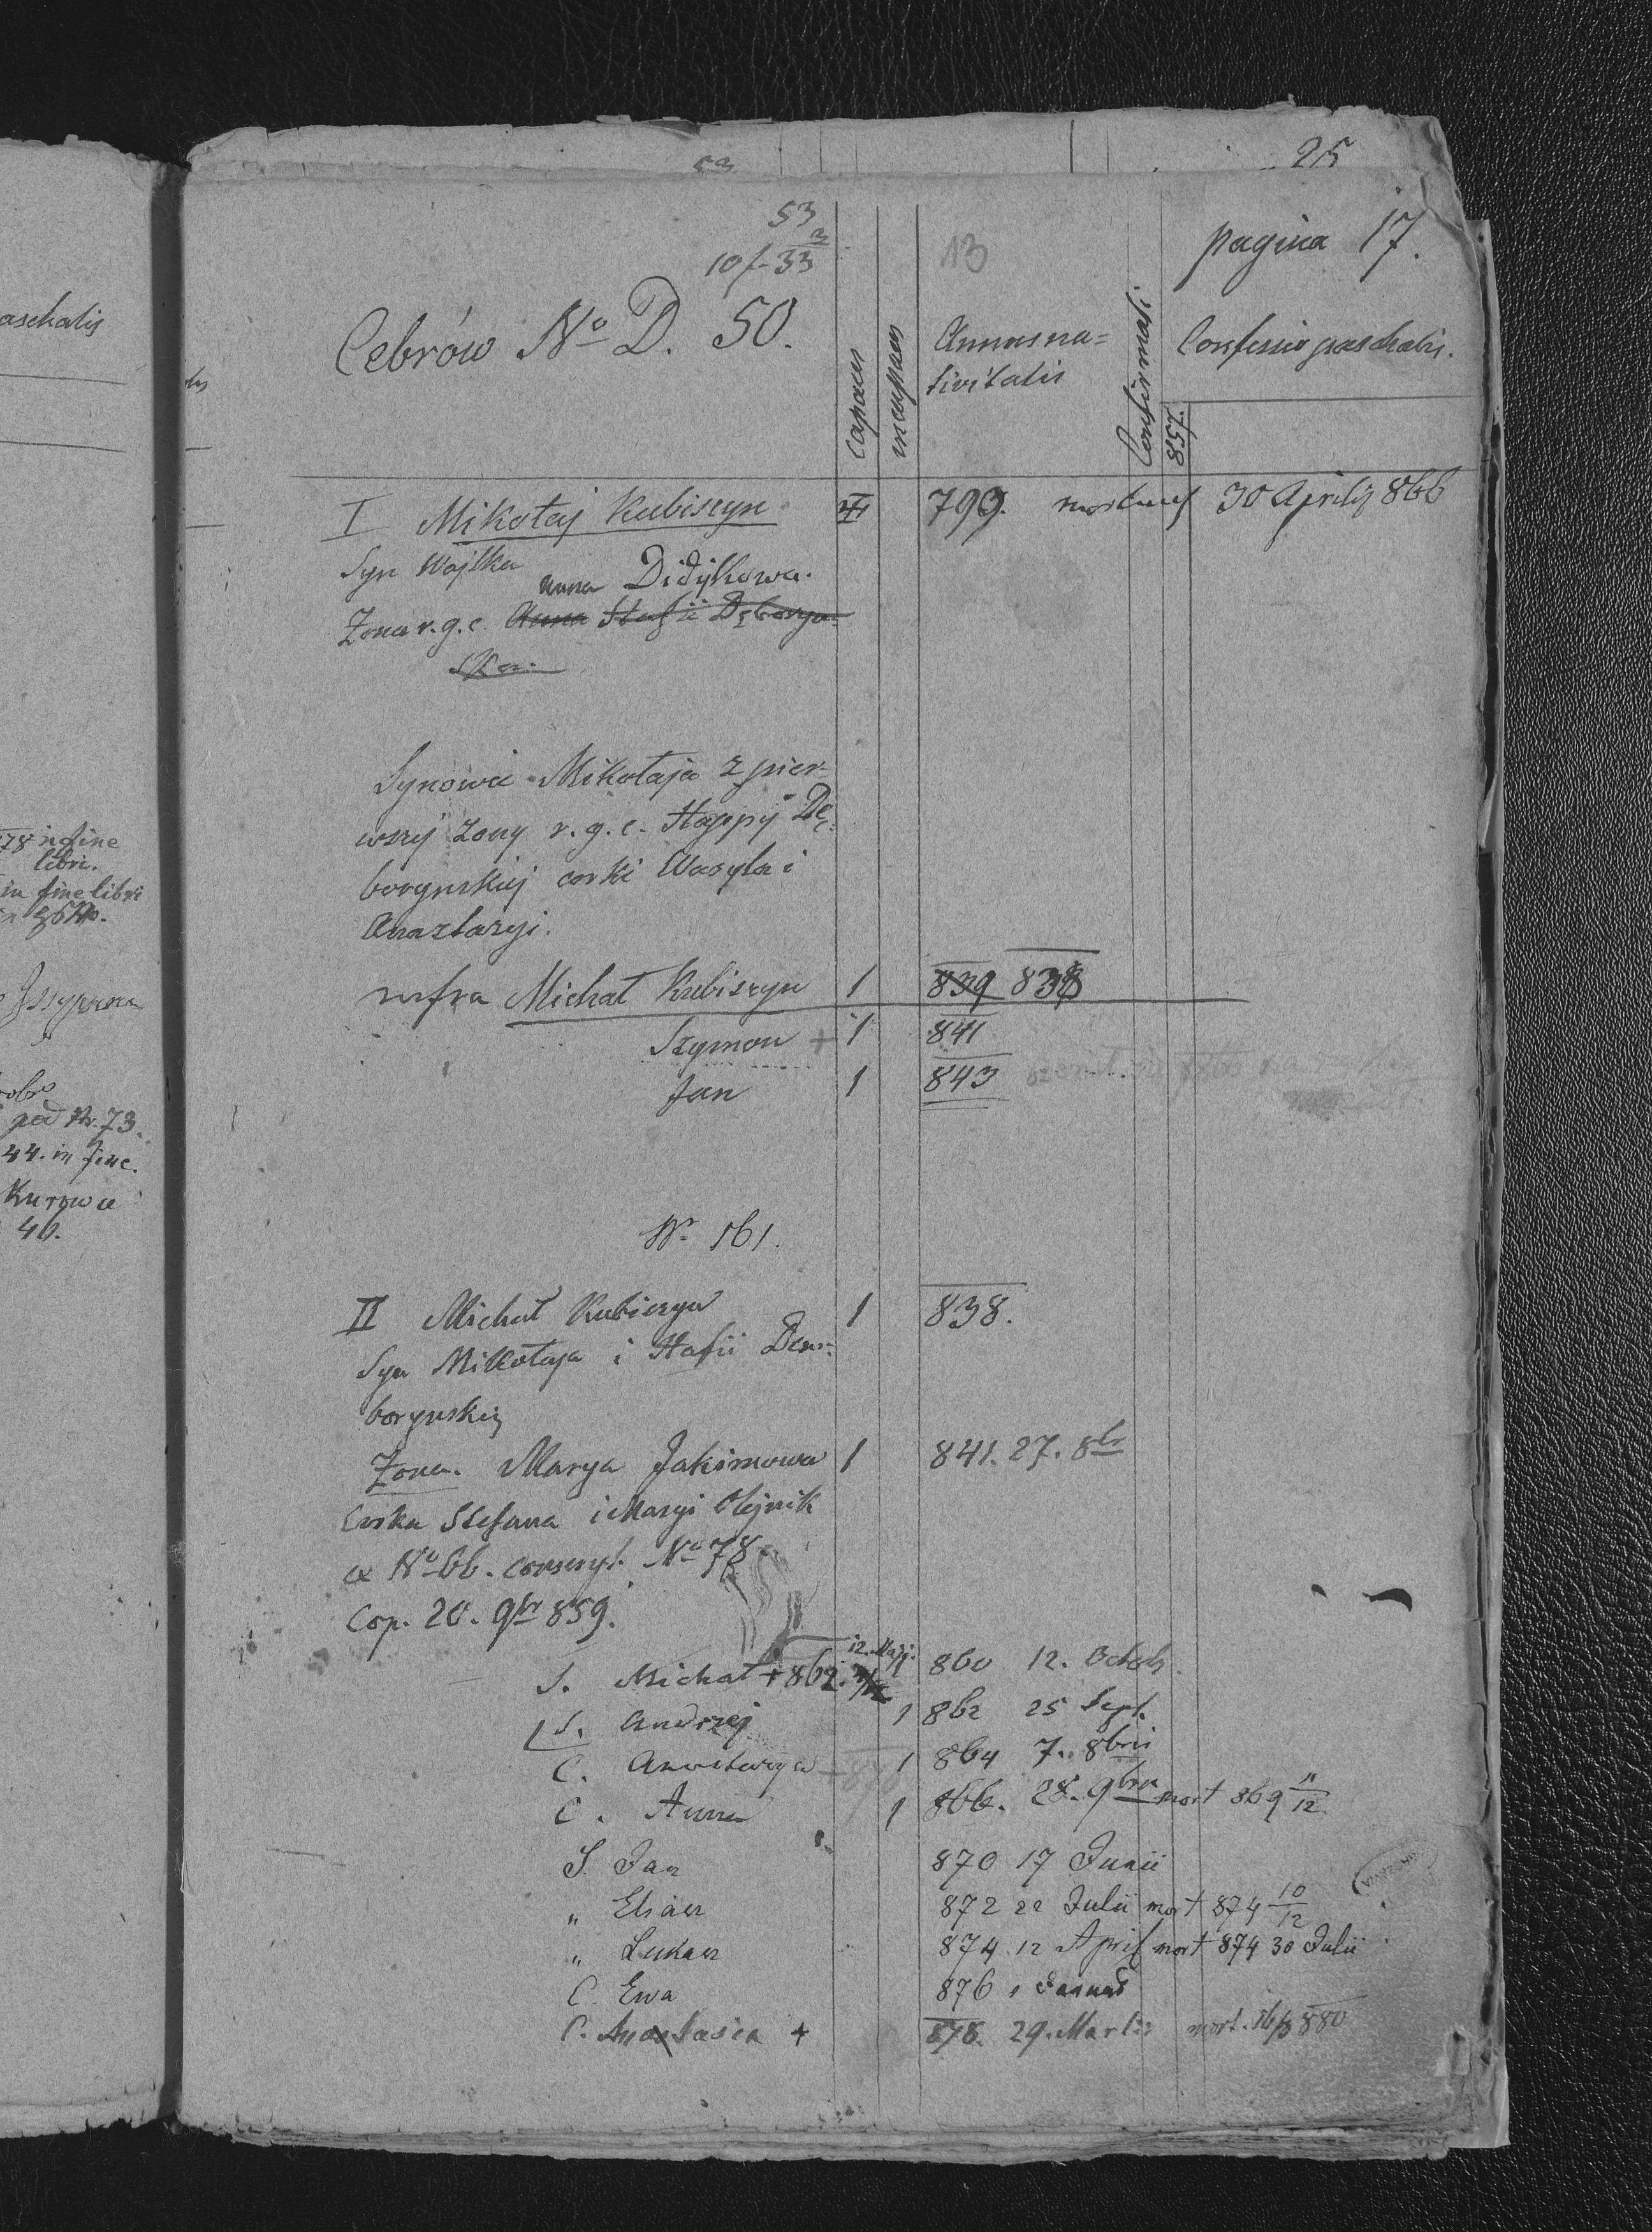 25
53
53
3
10/-33
13
pagina 17.
Cebrów No D. 50.
capaces
incapaces
Annus na=
tivitatis
Confirmati
Confessio paschalis.
857.
I Mikołaj Kubiszyn 799. mortuus 30 Aprilis 866
Syn Wojtka
Anna Didyłkowa.
Żona r. g. c. Anna Stafii Dęboryn-
ska.
Synowie Mikołaja z pier-
wszej żony r. g. c. Happy De-
borynskiej corki Wasyla i
Anaztazyi.
infra Michał Kubiszyn 1 839 838
Szymon + 1 841
Jan 1 843
No 161.
II Michał Kubiszyn 1 838.
Syn Mikołaja i Hafii Dem-
borynskiej
Żona. Marya Jakimowa 1 841. 27. 8br
Corka Stefana i Maryi Olejnik
ex No 66. conscrypt. No 78
Cop. 20. 9br 859.
12. Maji.
S. Michał + 862. 860 12. Octob.
S. Andrzej 1 862 25 Sept.
C. Anastazya 1 864 7. 8bris
C. Anna 1 866. 28. 9bris mort 869 11/12
S. Jan 870 17 Junii
" Eliasz 872 22 Julii mort 874 10/12
" Lukasz 874 12 April mort 874 30 Julii
C. Ewa 876 1 Januar
C. Anastasia + 878. 29. Martii mort. 16/3 880
aschalis
78 in fine
libri.
in fine libri
pod Nr. 73.
44. in fine.
Kurowa
40.